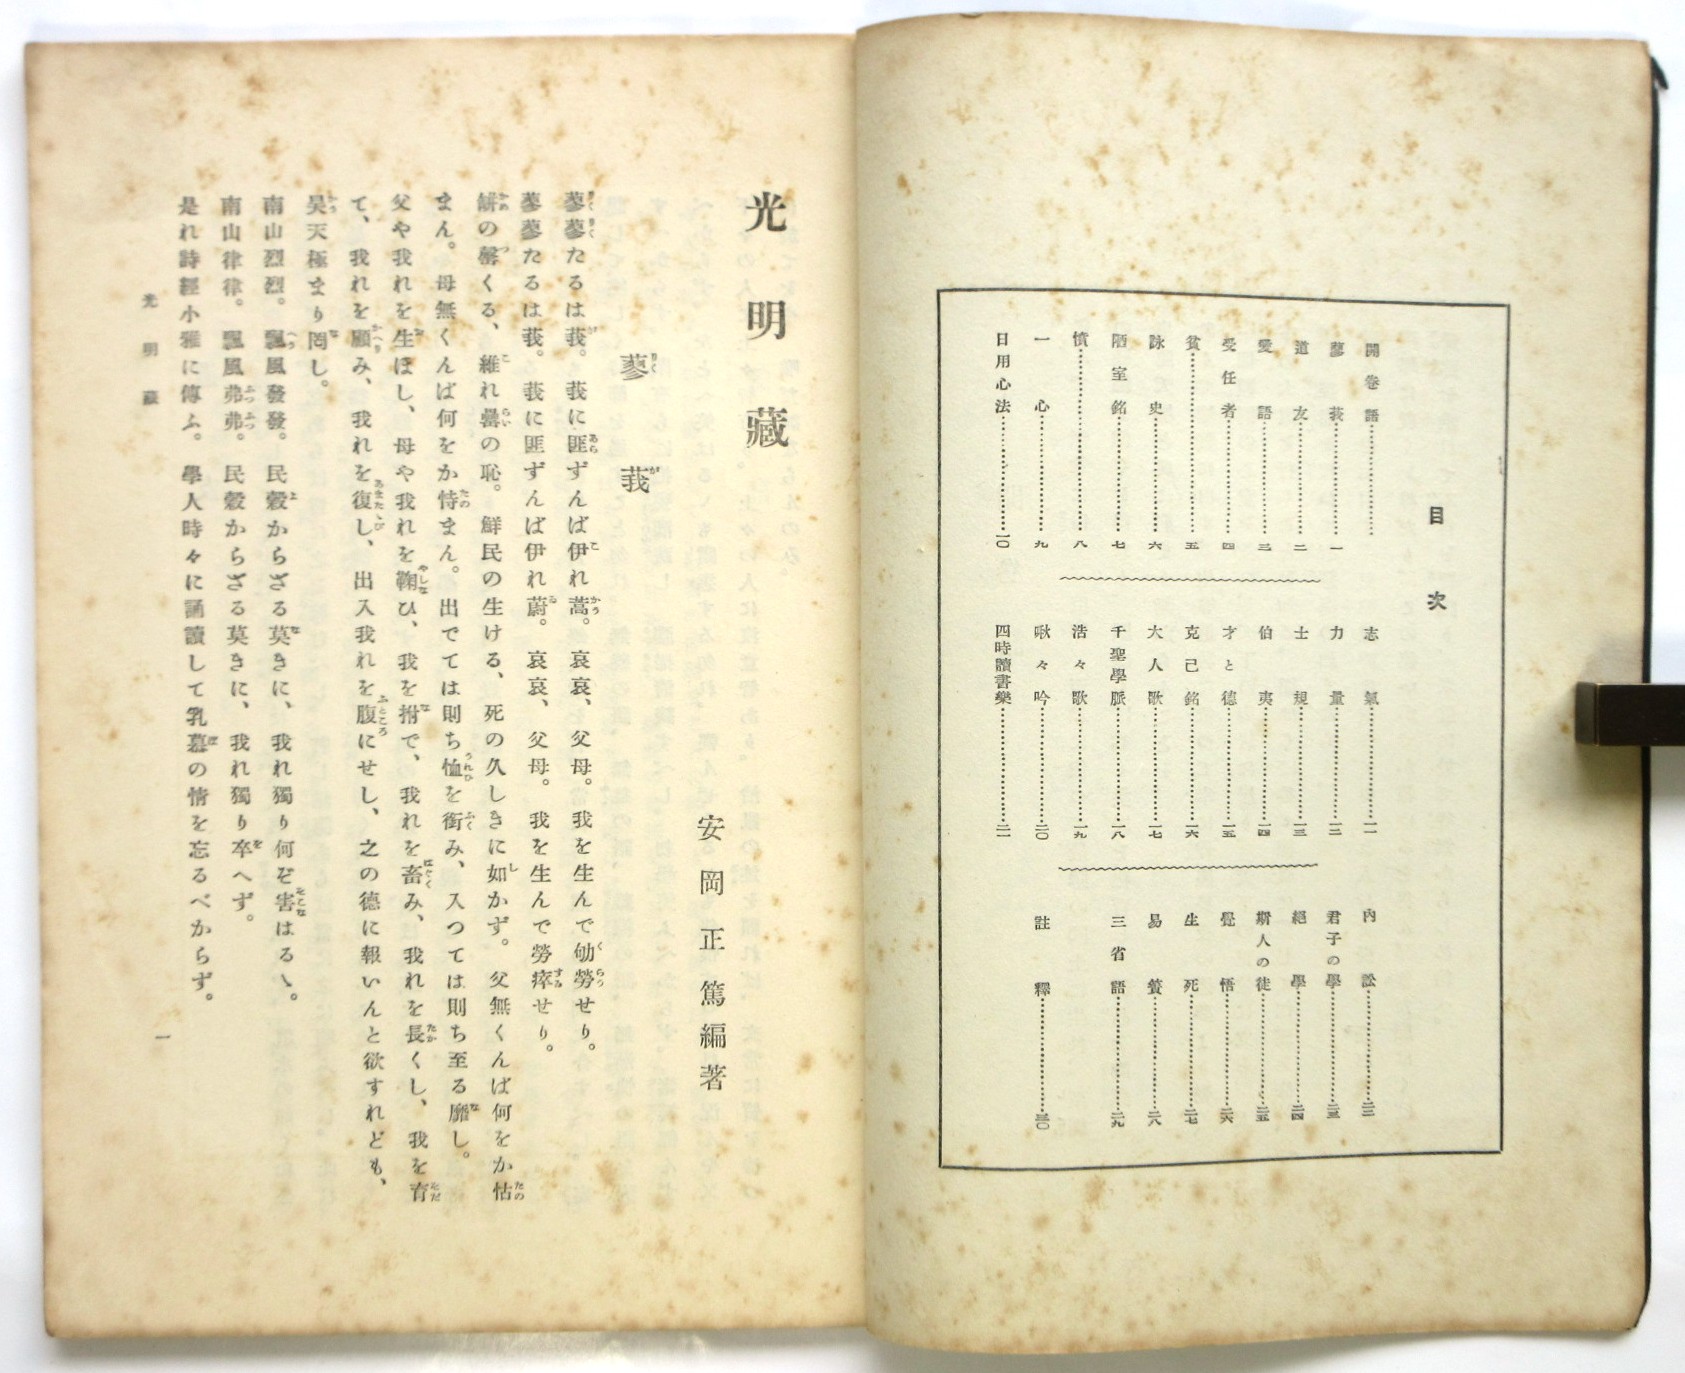 目次
開卷語
蓼莪 一
道友 二
愛語 三
受任者 四
貧 五
詠史 六
陋室銘 七
憤 八
一心 九
日用心法 一〇
志氣 一一
力量 一二
士規 一三
伯夷 一四
才と德 一五
克己銘 一六
大人歌 一七
千聖學脈 一八
浩々歌 一九
啾々吟 二〇
四時讀書樂 二一
內訟 二二
君子の學 二三
絕學 二四
斯人の徒 二五
覺悟 二六
生死 二七
易簀 二八
三省語 二九
註釋 三〇
光明藏
安岡正篤編著
蓼莪
蓼蓼たるは莪。莪に匪ずんば伊れ蒿。哀哀、父母。我を生んで劬勞せり。
蓼蓼たるは莪。莪に匪ずんば伊れ蔚。哀哀、父母。我を生んで勞瘁せり。
缾の罄くる、維れ罍の恥。鮮民の生ける、死の久しきに如かず。父無くんば何をか怙
まん。母無くんば何をか恃まん。出でては則ち恤を銜み、入つては則ち至る靡し。
父や我れを生ほし、母や我れを鞠ひ、我を拊で、我れを畜み、我れを長くし、我を育
て、我れを顧み、我れを復し、出入我れを腹にせし、之の德に報いんと欲すれども、
昊天極まり罔し。
南山烈烈。飄風發發。民穀からざる莫きに、我れ獨り何ぞ害はるゝ。
南山律律。飄風弗弗。民穀からざる莫きに、我れ獨り卒へず。
是れ詩經小雅に傳ふ。學人時々に誦讀して乳慕の情を忘るべからず。
光明藏
一